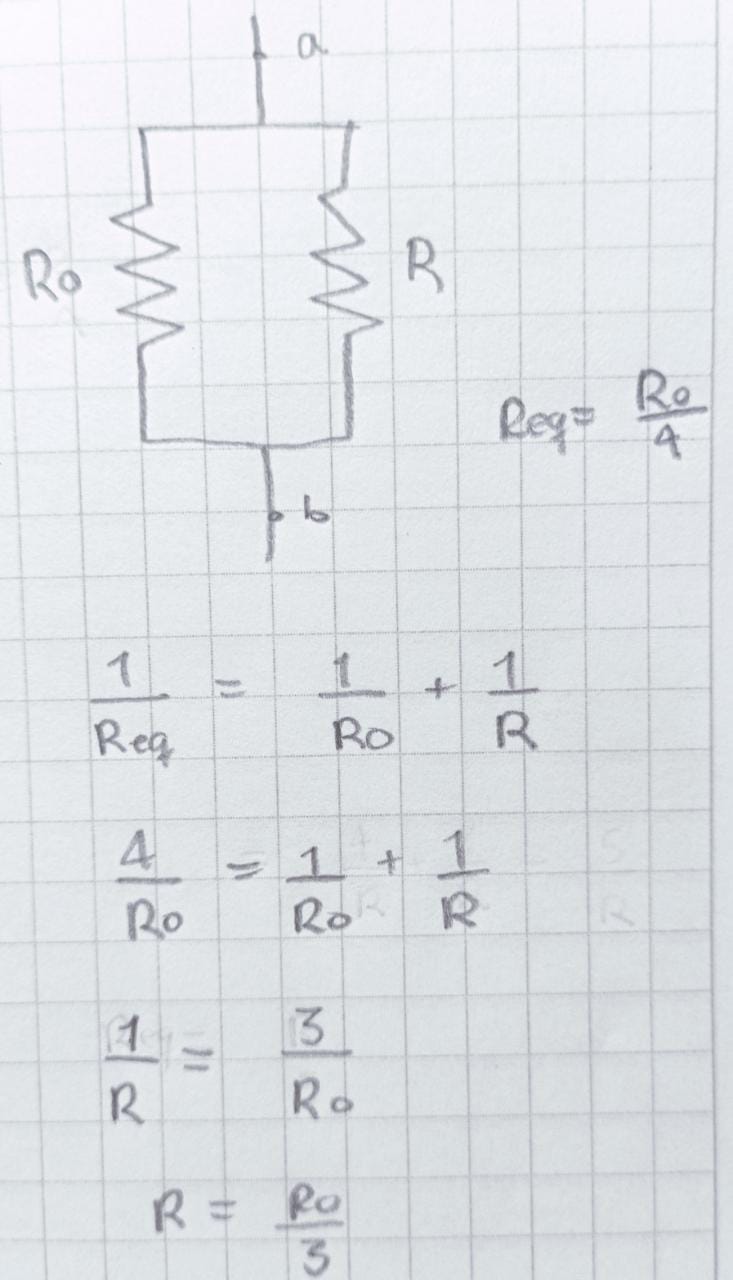 a
Ro
R
Req = Ro/4
b
1/Req = 1/Ro + 1/R
4/Ro = 1/Ro + 1/R
1/R = 3/Ro
R = Ro/3